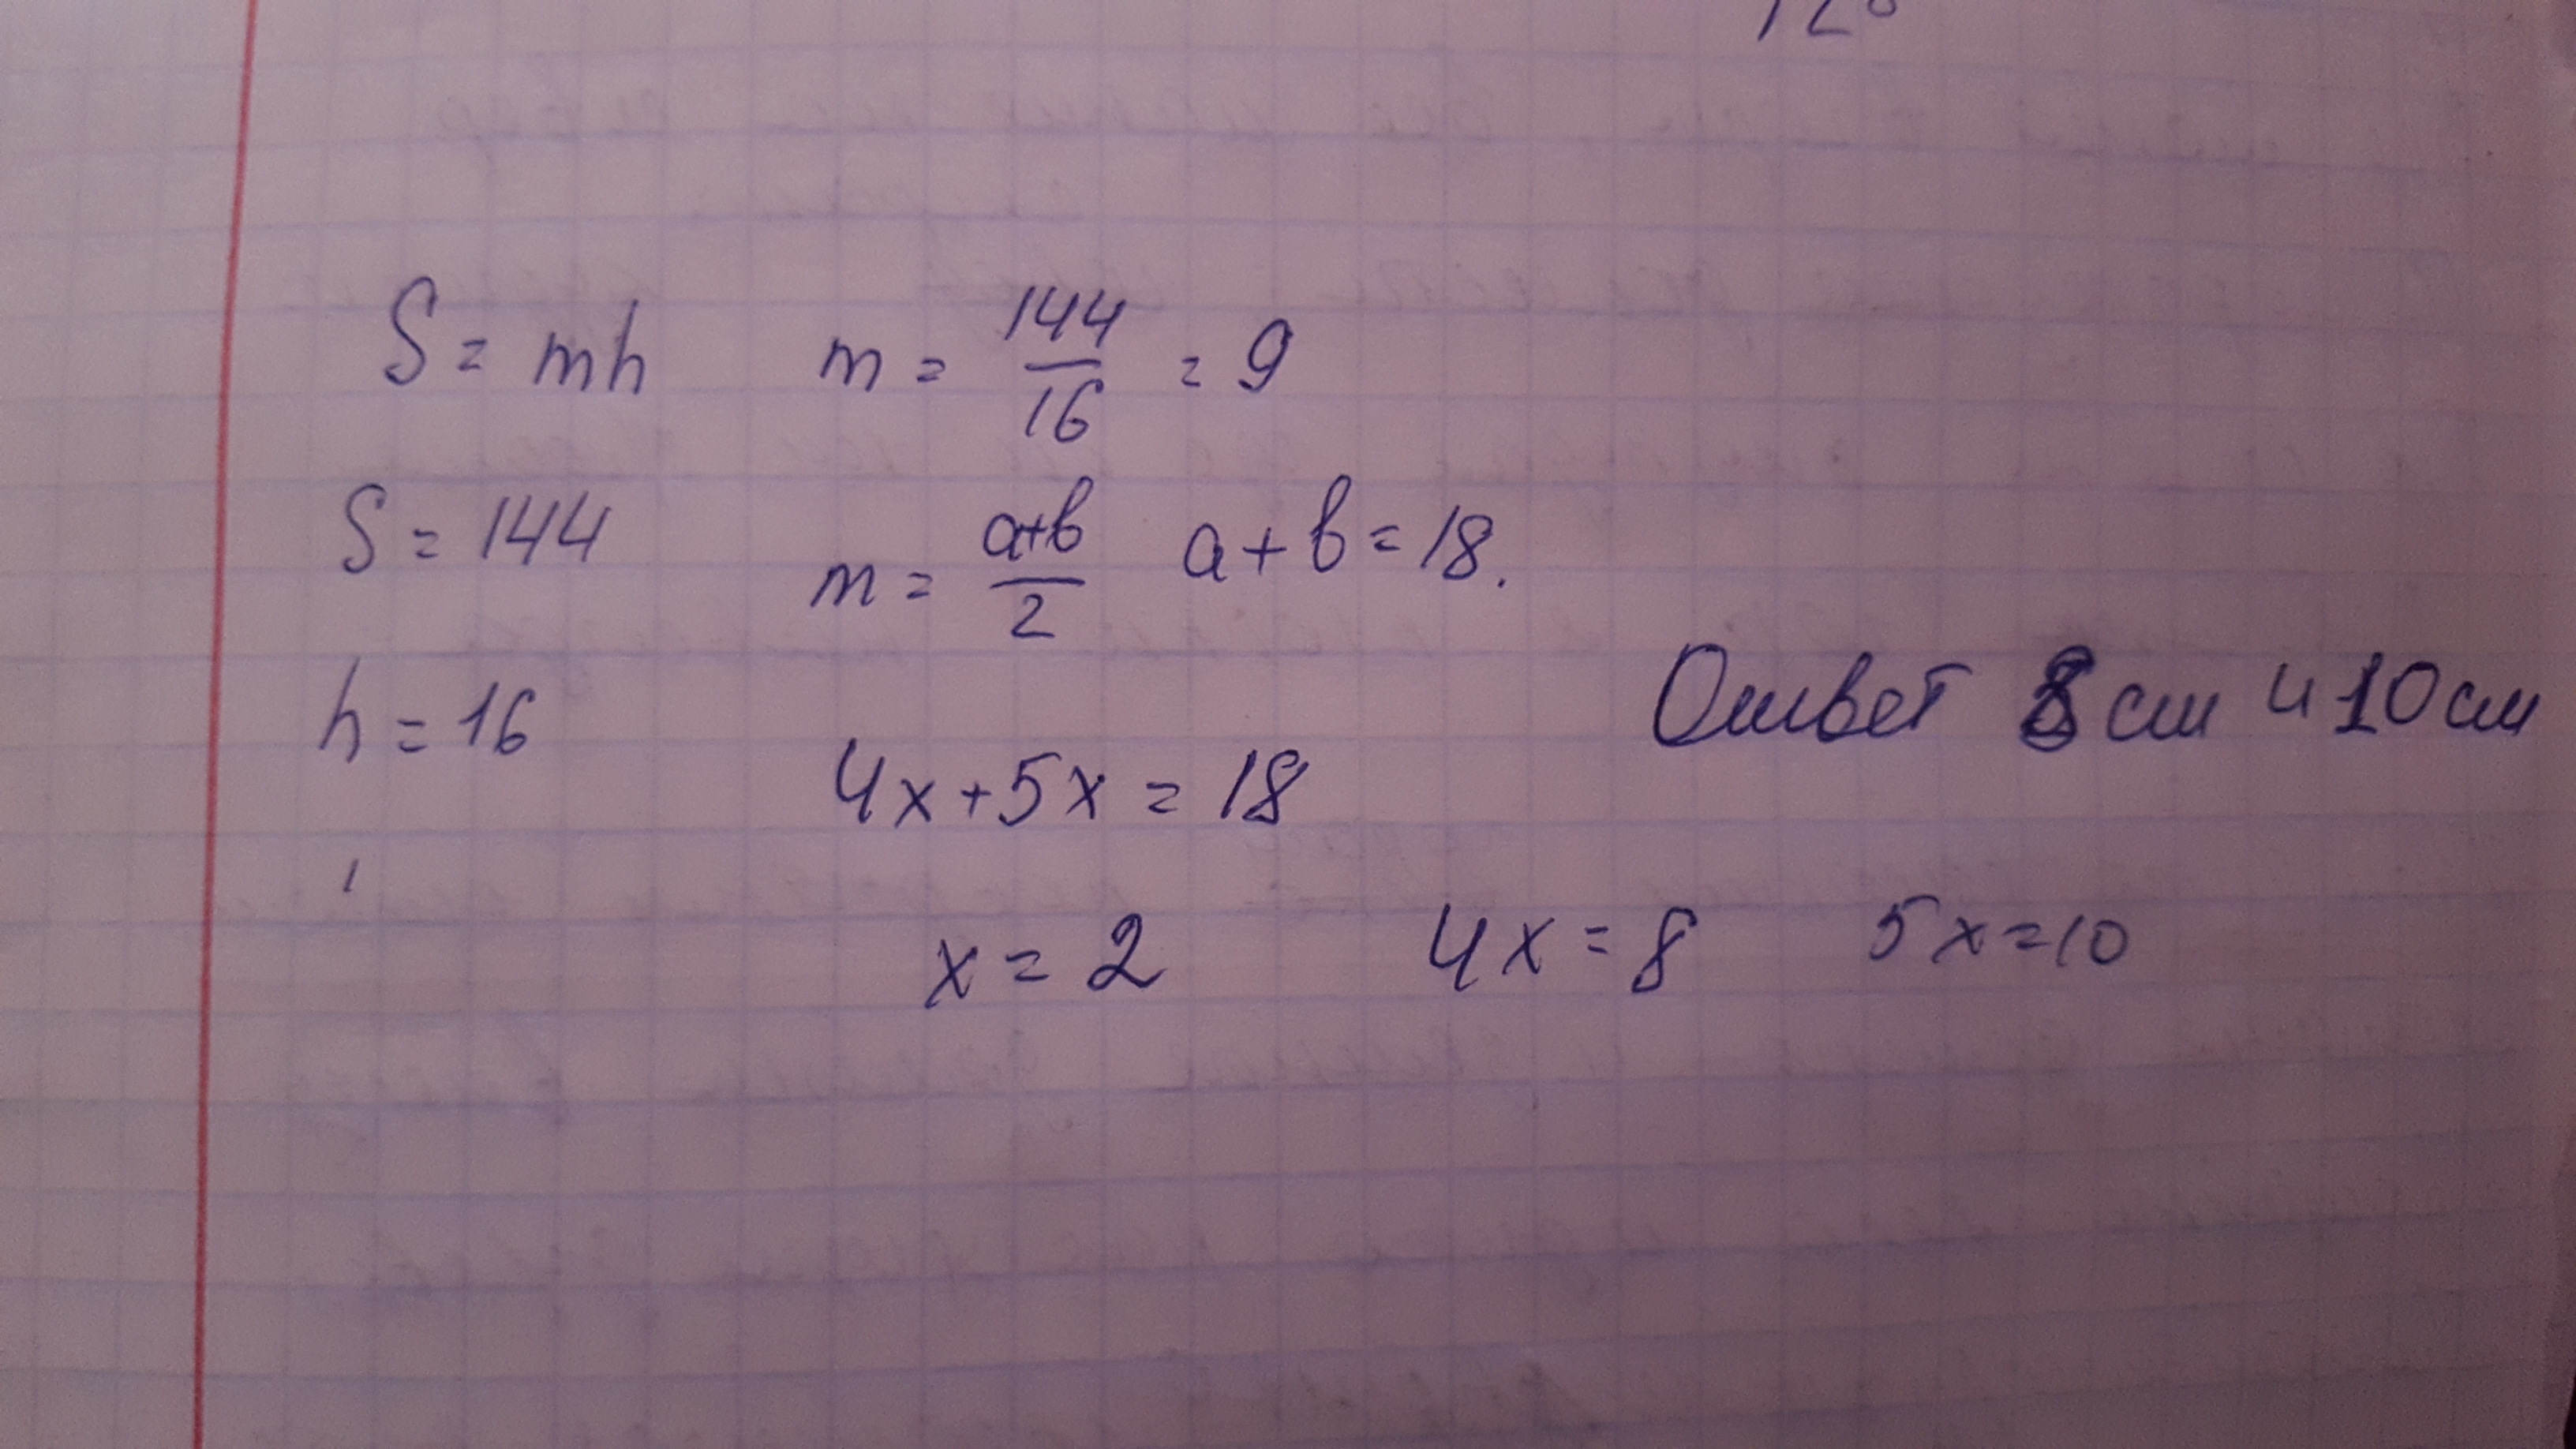 S = mh   m = 144/16 = 9
S = 144   m = a+b/2   a + b = 18.
h = 16   Ответ 8 см и 10 см
4x + 5x = 18
x = 2   4x = 8   5x = 10